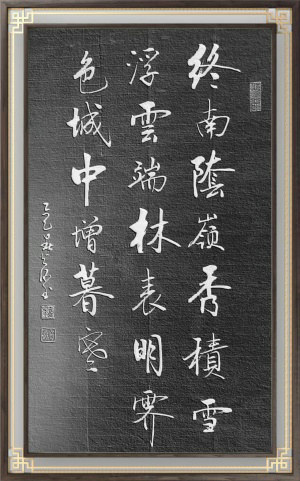 終南蔭嶺秀積雪
浮雲端林表明霽
色城中增暮寒
乙巳